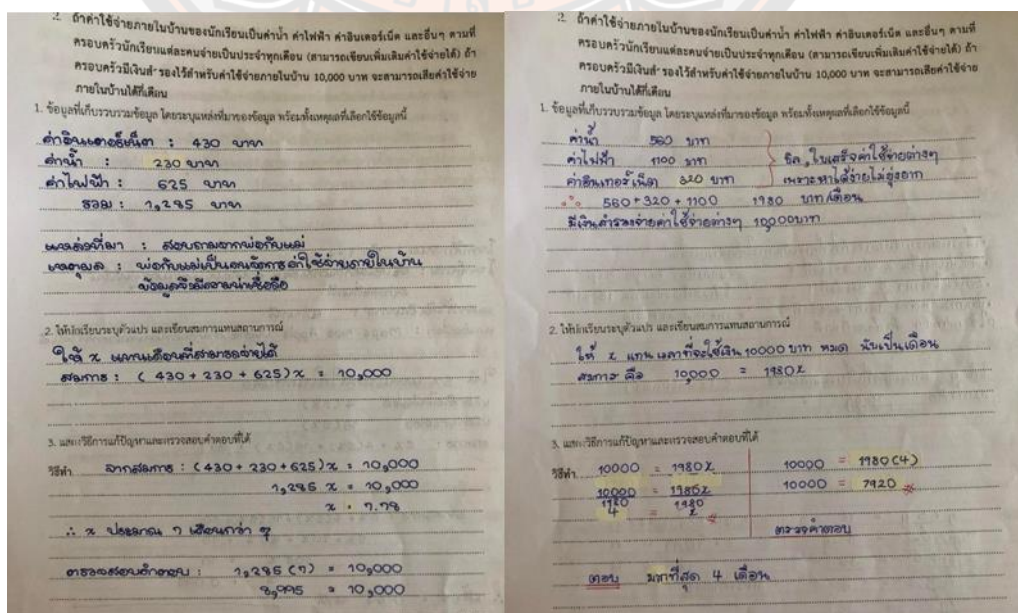 2. ถ้าค่าใช้จ่ายภายในบ้านของนักเรียนเป็นค่าน้ำ ค่าไฟฟ้า ค่าอินเตอร์เน็ต และอื่นๆ ตามที่
ครอบครัวนักเรียนแต่ละคนจ่ายเป็นประจำทุกเดือน (สามารถเขียนเพิ่มเติมค่าใช้จ่ายได้) ถ้า
ครอบครัวมีเงินสำรองไว้สำหรับค่าใช้จ่ายภายในบ้าน 10,000 บาท จะสามารถเสียค่าใช้จ่าย
ภายในบ้านได้กี่เดือน
1. ข้อมูลที่เก็บรวบรวมข้อมูล โดยระบุแหล่งที่มาของข้อมูล พร้อมทั้งเหตุผลที่เลือกใช้ข้อมูลนี้
ค่าอินเตอร์เน็ต : 430 บาท
ค่าน้ำ : 230 บาท
ค่าไฟฟ้า : 625 บาท
รวม : 1,285 บาท
แหล่งที่มา : สอบถามจากพ่อกับแม่
เหตุผล : พ่อกับแม่เป็นคนจัดการค่าใช้จ่ายภายในบ้าน
ข้อมูลจึงมีความน่าเชื่อถือ
2. ให้นักเรียนระบุตัวแปร และเขียนสมการแทนสถานการณ์
ให้ x แทนเดือนที่สามารถจ่ายได้
สมการ : (430 + 230 + 625)x = 10,000
3. แสดงวิธีการแก้ปัญหาและตรวจสอบคำตอบที่ได้
วิธีทำ จากสมการ : (430 + 230 + 625)x = 10,000
1,285 x = 10,000
x = 7.78
∴ x ประมาณ 7 เดือนกว่า ๆ
ตรวจสอบคำตอบ : 1,285 (7) = 10,000
8,995 = 10,000
2. ถ้าค่าใช้จ่ายภายในบ้านของนักเรียนเป็นค่าน้ำ ค่าไฟฟ้า ค่าอินเตอร์เน็ต และอื่นๆ ตามที่
ครอบครัวนักเรียนแต่ละคนจ่ายเป็นประจำทุกเดือน (สามารถเขียนเพิ่มเติมค่าใช้จ่ายได้) ถ้า
ครอบครัวมีเงินสำรองไว้สำหรับค่าใช้จ่ายภายในบ้าน 10,000 บาท จะสามารถเสียค่าใช้จ่าย
ภายในบ้านได้กี่เดือน
1. ข้อมูลที่เก็บรวบรวมข้อมูล โดยระบุแหล่งที่มาของข้อมูล พร้อมทั้งเหตุผลที่เลือกใช้ข้อมูลนี้
ค่าน้ำ 560 บาท
ค่าไฟฟ้า 1100 บาท บิล, ใบเสร็จค่าใช้จ่ายต่างๆ
ค่าอินเทอร์เน็ต 320 บาท เพราะหาได้ง่ายไม่ยุ่งยาก
∴ 560 + 320 + 1100 1980 บาท/เดือน
มีเงินสำรองจ่ายค่าใช้จ่ายต่างๆ 10,000บาท
2. ให้นักเรียนระบุตัวแปร และเขียนสมการแทนสถานการณ์
ให้ x แทน เวลาที่จะใช้เงิน 10000 บาท หมด นับเป็นเดือน
สมการ คือ 10,000 = 1980x
3. แสดงวิธีการแก้ปัญหาและตรวจสอบคำตอบที่ได้
วิธีทำ 10000 = 1980x 10000 = 1980(4)
10000 = 1980x 10000 = 7920
1980 1980
4 = x
ตรวจคำตอบ
ตอบ มากที่สุด 4 เดือน